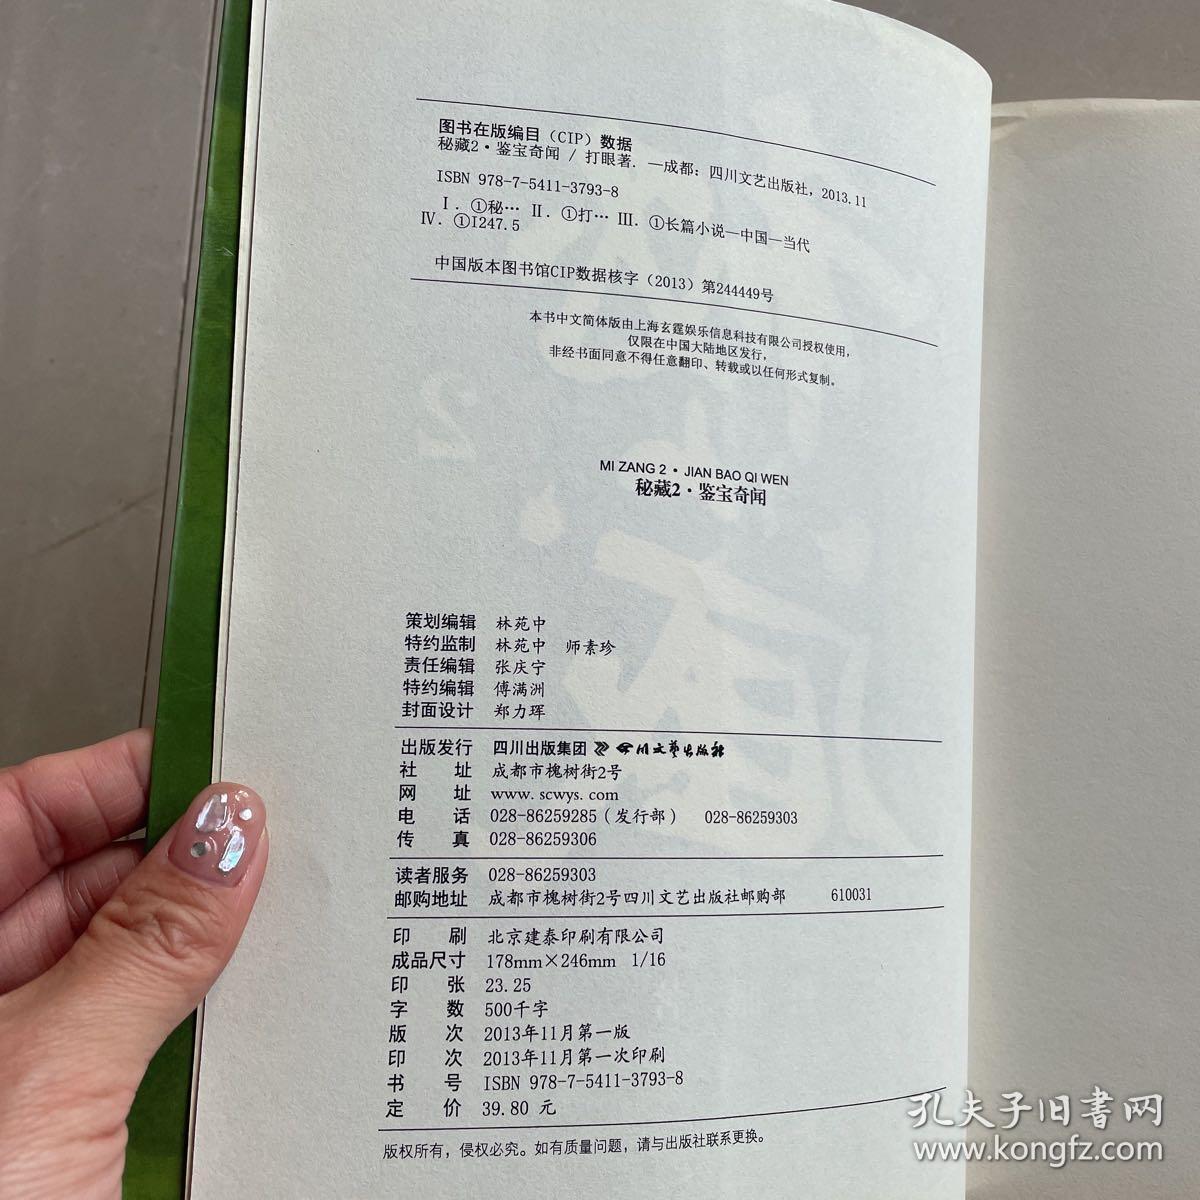 图书在版编目（CIP）数据
秘藏2·鉴宝奇闻 / 打眼著. —成都：四川文艺出版社，2013.11
ISBN 978-7-5411-3793-8
Ⅰ. ①秘… Ⅱ. ①打… Ⅲ. ①长篇小说—中国—当代
Ⅳ. ①I247.5
中国版本图书馆CIP数据核字（2013）第244449号
本书中文简体版由上海玄霆娱乐信息科技有限公司授权使用，
仅限在中国大陆地区发行，
非经书面同意不得任意翻印、转载或以任何形式复制。
MI ZANG 2 · JIAN BAO QI WEN
秘藏2·鉴宝奇闻
策划编辑 林苑中
特约监制 林苑中 师素珍
责任编辑 张庆宁
特约编辑 傅满洲
封面设计 郑力珲
出版发行 四川出版集团 四川文艺出版社
社 址 成都市槐树街2号
网 址 www.scwys.com
电 话 028-86259285（发行部） 028-86259303
传 真 028-86259306
读者服务 028-86259303
邮购地址 成都市槐树街2号四川文艺出版社邮购部 610031
印 刷 北京建泰印刷有限公司
成品尺寸 178mm×246mm 1/16
印 张 23.25
字 数 500千字
版 次 2013年11月第一版
印 次 2013年11月第一次印刷
书 号 ISBN 978-7-5411-3793-8
定 价 39.80 元
版权所有，侵权必究。如有质量问题，请与出版社联系更换。
孔夫子旧书网
www.kongfz.com